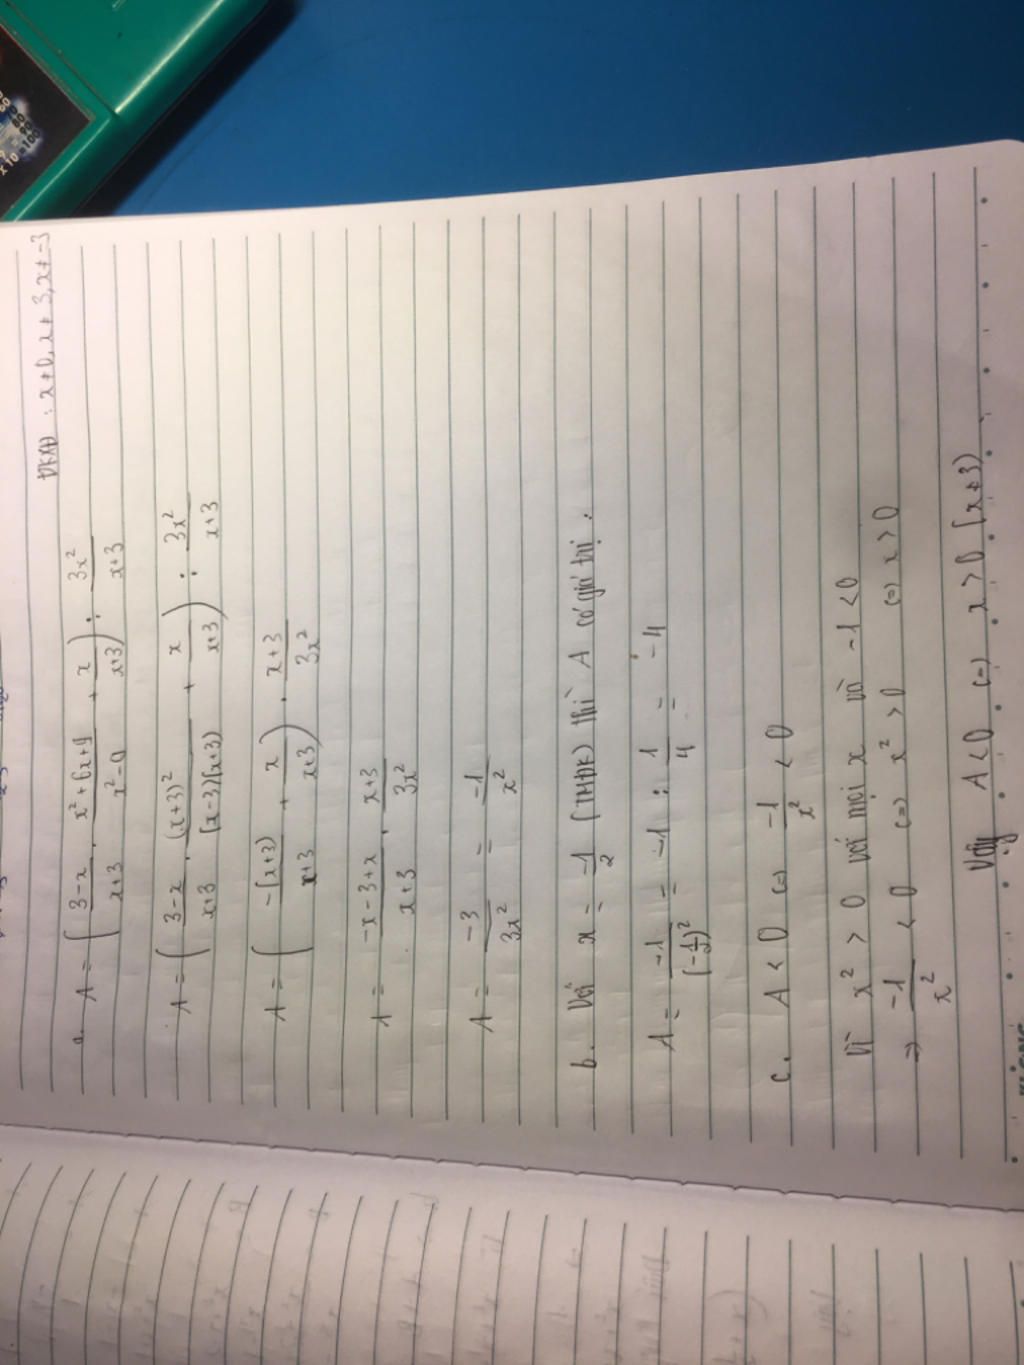 ĐKXĐ : x ≠ 0, x ≠ 3, x ≠ -3
a. A = ( (3-x)/(x+3) . (x² + 6x + 9)/(x² - 9) + x/(x+3) ) : 3x²/(x+3)
A = ( (3-x)/(x+3) . (x+3)²/((x-3)(x+3)) + x/(x+3) ) : 3x²/(x+3)
A = ( -(x+3)/(x+3) + x/(x+3) ) . (x+3)/3x²
A = (-x-3+x)/(x+3) . (x+3)/3x²
A = -3/3x² = -1/x²
b. Với x = -1/2 (TMĐK) thì A có giá trị :
A = -1/(-1/2)² = -1 : 1/4 = -4
c. A < 0 (=) -1/x² < 0
Vì x² > 0 với mọi x và -1 < 0
=> -1/x² < 0 (=) x² > 0 (=) x > 0
Vậy A < 0 (=) x > 0 (x ≠ 3)
x10 =100